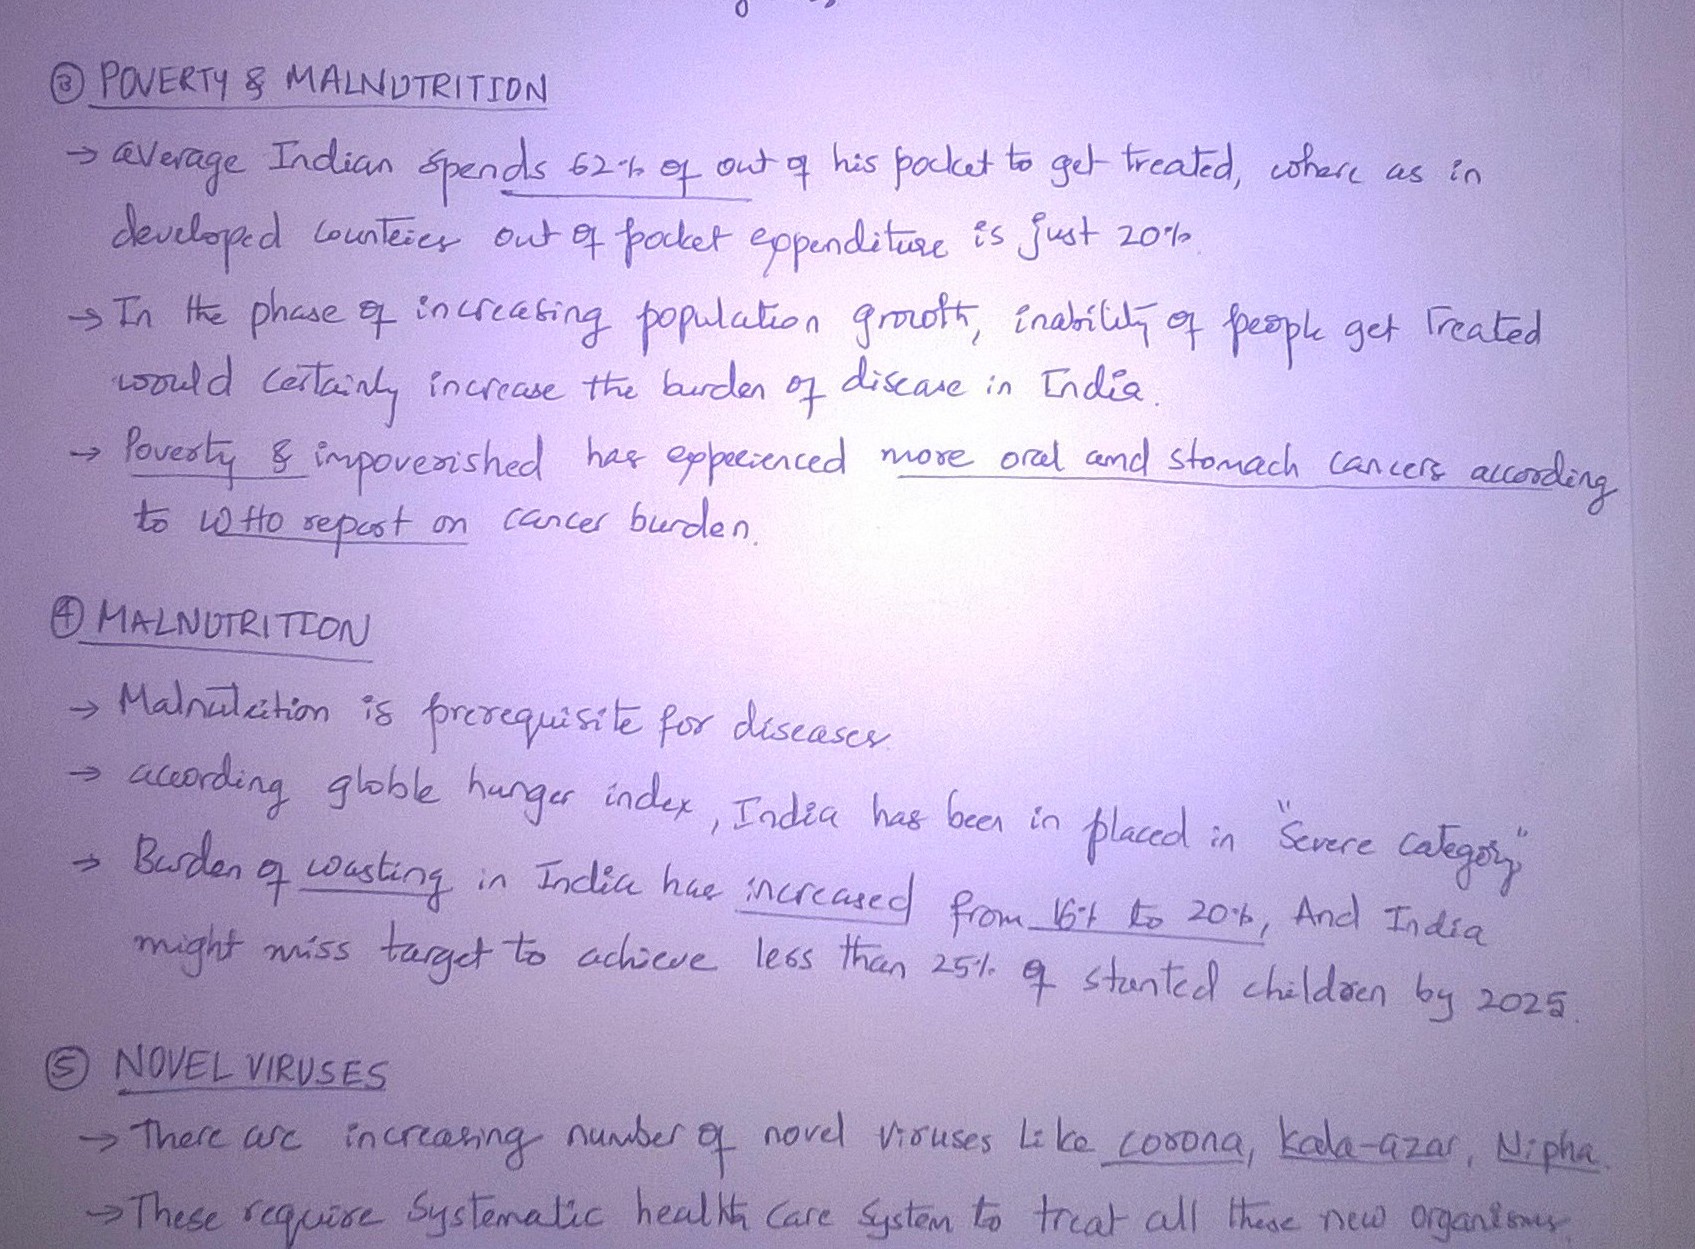 ③ POVERTY & MALNUTRITION
→ average Indian spends 62% of out of his pocket to get treated, where as in
developed countries out of pocket expenditure is just 20%.
→ In the phase of increasing population growth, inability of people get Treated
would certainly increase the burden of disease in India.
→ Poverty & impoverished has experienced more oral and stomach cancers according
to WHO report on cancer burden.
④ MALNUTRITION
→ Malnutrition is prerequisite for diseases
→ according globle hunger index, India has been in placed in "Severe category"
→ Burden of wasting in India has increased from 16% to 20%, And India
might miss target to achieve less than 25% of stunted children by 2025.
⑤ NOVEL VIRUSES
→ There are increasing number of novel viruses like corona, kala-azar, Nipha.
→ These require systematic health care system to treat all these new organisms.